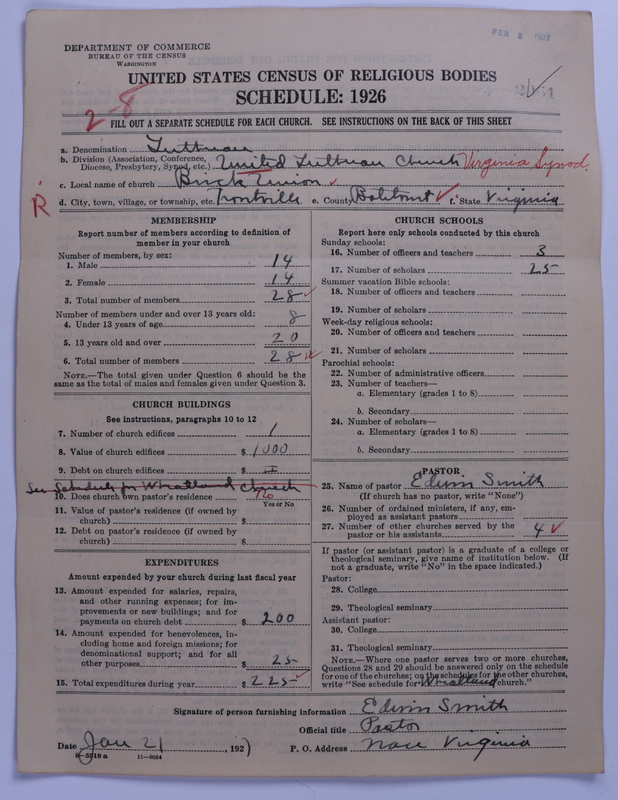 FEB 2 1927
DEPARTMENT OF COMMERCE
BUREAU OF THE CENSUS
WASHINGTON
UNITED STATES CENSUS OF RELIGIOUS BODIES
SCHEDULE: 1926
2-8
FILL OUT A SEPARATE SCHEDULE FOR EACH CHURCH. SEE INSTRUCTIONS ON THE BACK OF THIS SHEET
a. Denomination Luthuran
b. Division (Association, Conference, Diocese, Presbytery, Synod, etc.) United Luthuran Church Virginia Synod
c. Local name of church Brick Union
R
d. City, town, village, or township, etc. Troutville e. County Botetourt f. State Virginia
MEMBERSHIP
Report number of members according to definition of
member in your church
Number of members, by sex:
1. Male 14
2. Female 14
3. Total number of members 28
Number of members under and over 13 years old:
4. Under 13 years of age 8
5. 13 years old and over 20
6. Total number of members 28
NOTE.—The total given under Question 6 should be
same as the total of males and females given under Question 3.
CHURCH BUILDINGS
See instructions, paragraphs 10 to 12
7. Number of church edifices 1
8. Value of church edifices $ 1000
9. Debt on church edifices $
See Schedule for Wheatland Church
10. Does church own pastor's residence No
Yes or No
11. Value of pastor's residence (if owned by
church) $
12. Debt on pastor's residence (if owned by
church) $
EXPENDITURES
Amount expended by your church during last fiscal year
13. Amount expended for salaries, repairs,
and other running expenses; for im-
provements or new buildings; and for
payments on church debt $ 200
14. Amount expended for benevolences, in-
cluding home and foreign missions; for
denominational support; and for all
other purposes $ 25
15. Total expenditures during year $ 225
CHURCH SCHOOLS
Report here only schools conducted by this church
Sunday schools:
16. Number of officers and teachers 3
17. Number of scholars 25
Summer vacation Bible schools:
18. Number of officers and teachers
19. Number of scholars
Week-day religious schools:
20. Number of officers and teachers
21. Number of scholars
Parochial schools:
22. Number of administrative officers
23. Number of teachers—
a. Elementary (grades 1 to 8)
b. Secondary
24. Number of scholars—
a. Elementary (grades 1 to 8)
b. Secondary
PASTOR
25. Name of pastor Edwin Smith
(If church has no pastor, write "None")
26. Number of ordained ministers, if any, em-
ployed as assistant pastors
27. Number of other churches served by the
pastor or his assistants 4
If pastor (or assistant pastor) is a graduate of a college or
theological seminary, give name of institution below. (If
not a graduate, write "No" in the space indicated.)
Pastor:
28. College
29. Theological seminary
Assistant pastor:
30. College
31. Theological seminary
NOTE.—Where one pastor serves two or more churches,
Questions 28 and 29 should be answered only on the schedule
for one of the churches; on the schedules for the other churches,
write "See schedule for Wheatland church."
Signature of person furnishing information Edwin Smith
Official title Pastor
Date Jan 21, 1927 P. O. Address Nace Virginia
8-5518a 11-9034